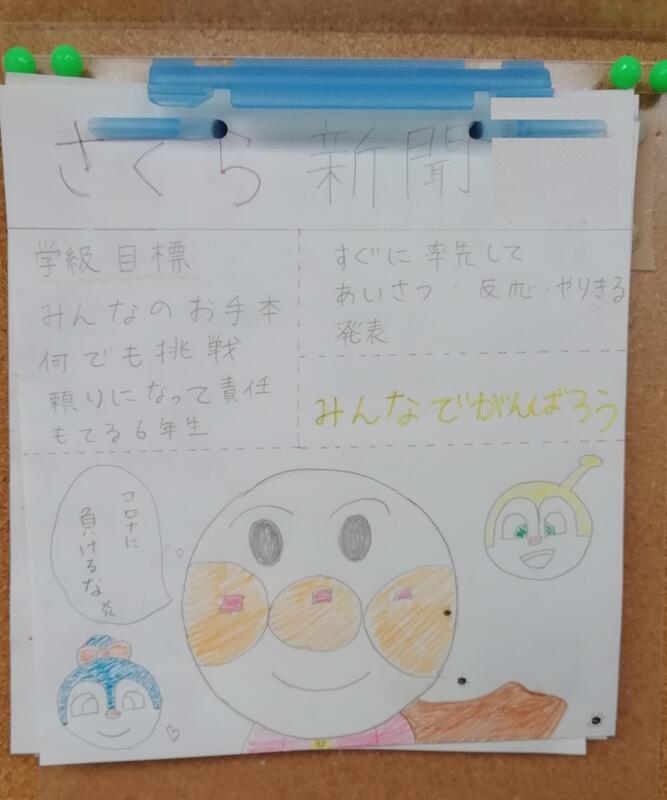 さくら新聞
学級目標
みんなのお手本
何でも挑戦
頼りになって責任
もてる6年生
すぐに率先して
あいさつ・反応・やりきる
発表
みんなでがんばろう
コロナに
負けるな